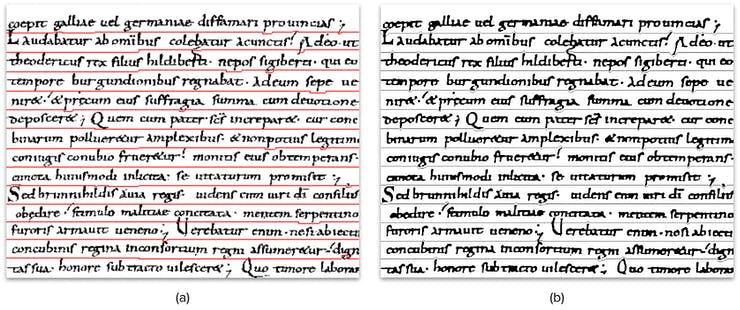 coepit galliae uel germaniae diffamari prouincias ;
Laudabatur ab omībus colebatur acunctis. Adeo ut
theodericus rex filius hildiberti. nepos sigiberti. qui eo
tempore burgundionibus regnabat. Adeum sepe ue
niret. & precum eius suffragia summa cum deuotione
deposceret ; Quem cum pater sc̄s increparet. cur conc
binarum pollueretur amplexibus. & nonpotius legitim
coniugis conubio frueretur. monitis eius obtemperans.
cuncta huiusmodi inlicita. se uitaturum promisit ;
Sed brunnihildis auia regis. uidens eum uiri dī consiliis
obedire. stimulo malitiae concitata. mentem serpentino
furoris armauit ueneno ; Uerebatur enim. nesi abiecti
concubinis regina inconsortium regni assumeretur. dign
tassua. honore subtracto uilesceret ; Quo timore laboran
(a)
coepit galliae uel germaniae diffamari prouincias ;
Laudabatur ab omībus colebatur acunctis. Adeo ut
theodericus rex filius hildiberti. nepos sigiberti. qui eo
tempore burgundionibus regnabat. Adeum sepe ue
niret. & precum eius suffragia summa cum deuotione
deposceret ; Quem cum pater sc̄s increparet. cur conc
binarum pollueretur amplexibus. & nonpotius legitim
coniugis conubio frueretur. monitis eius obtemperans.
cuncta huiusmodi inlicita. se uitaturum promisit ;
Sed brunnihildis auia regis. uidens eum uiri dī consiliis
obedire. stimulo malitiae concitata. mentem serpentino
furoris armauit ueneno ; Uerebatur enim. nesi abiecti
concubinis regina inconsortium regni assumeretur. dign
tassua. honore subtracto uilesceret ; Quo timore laboran
(b)